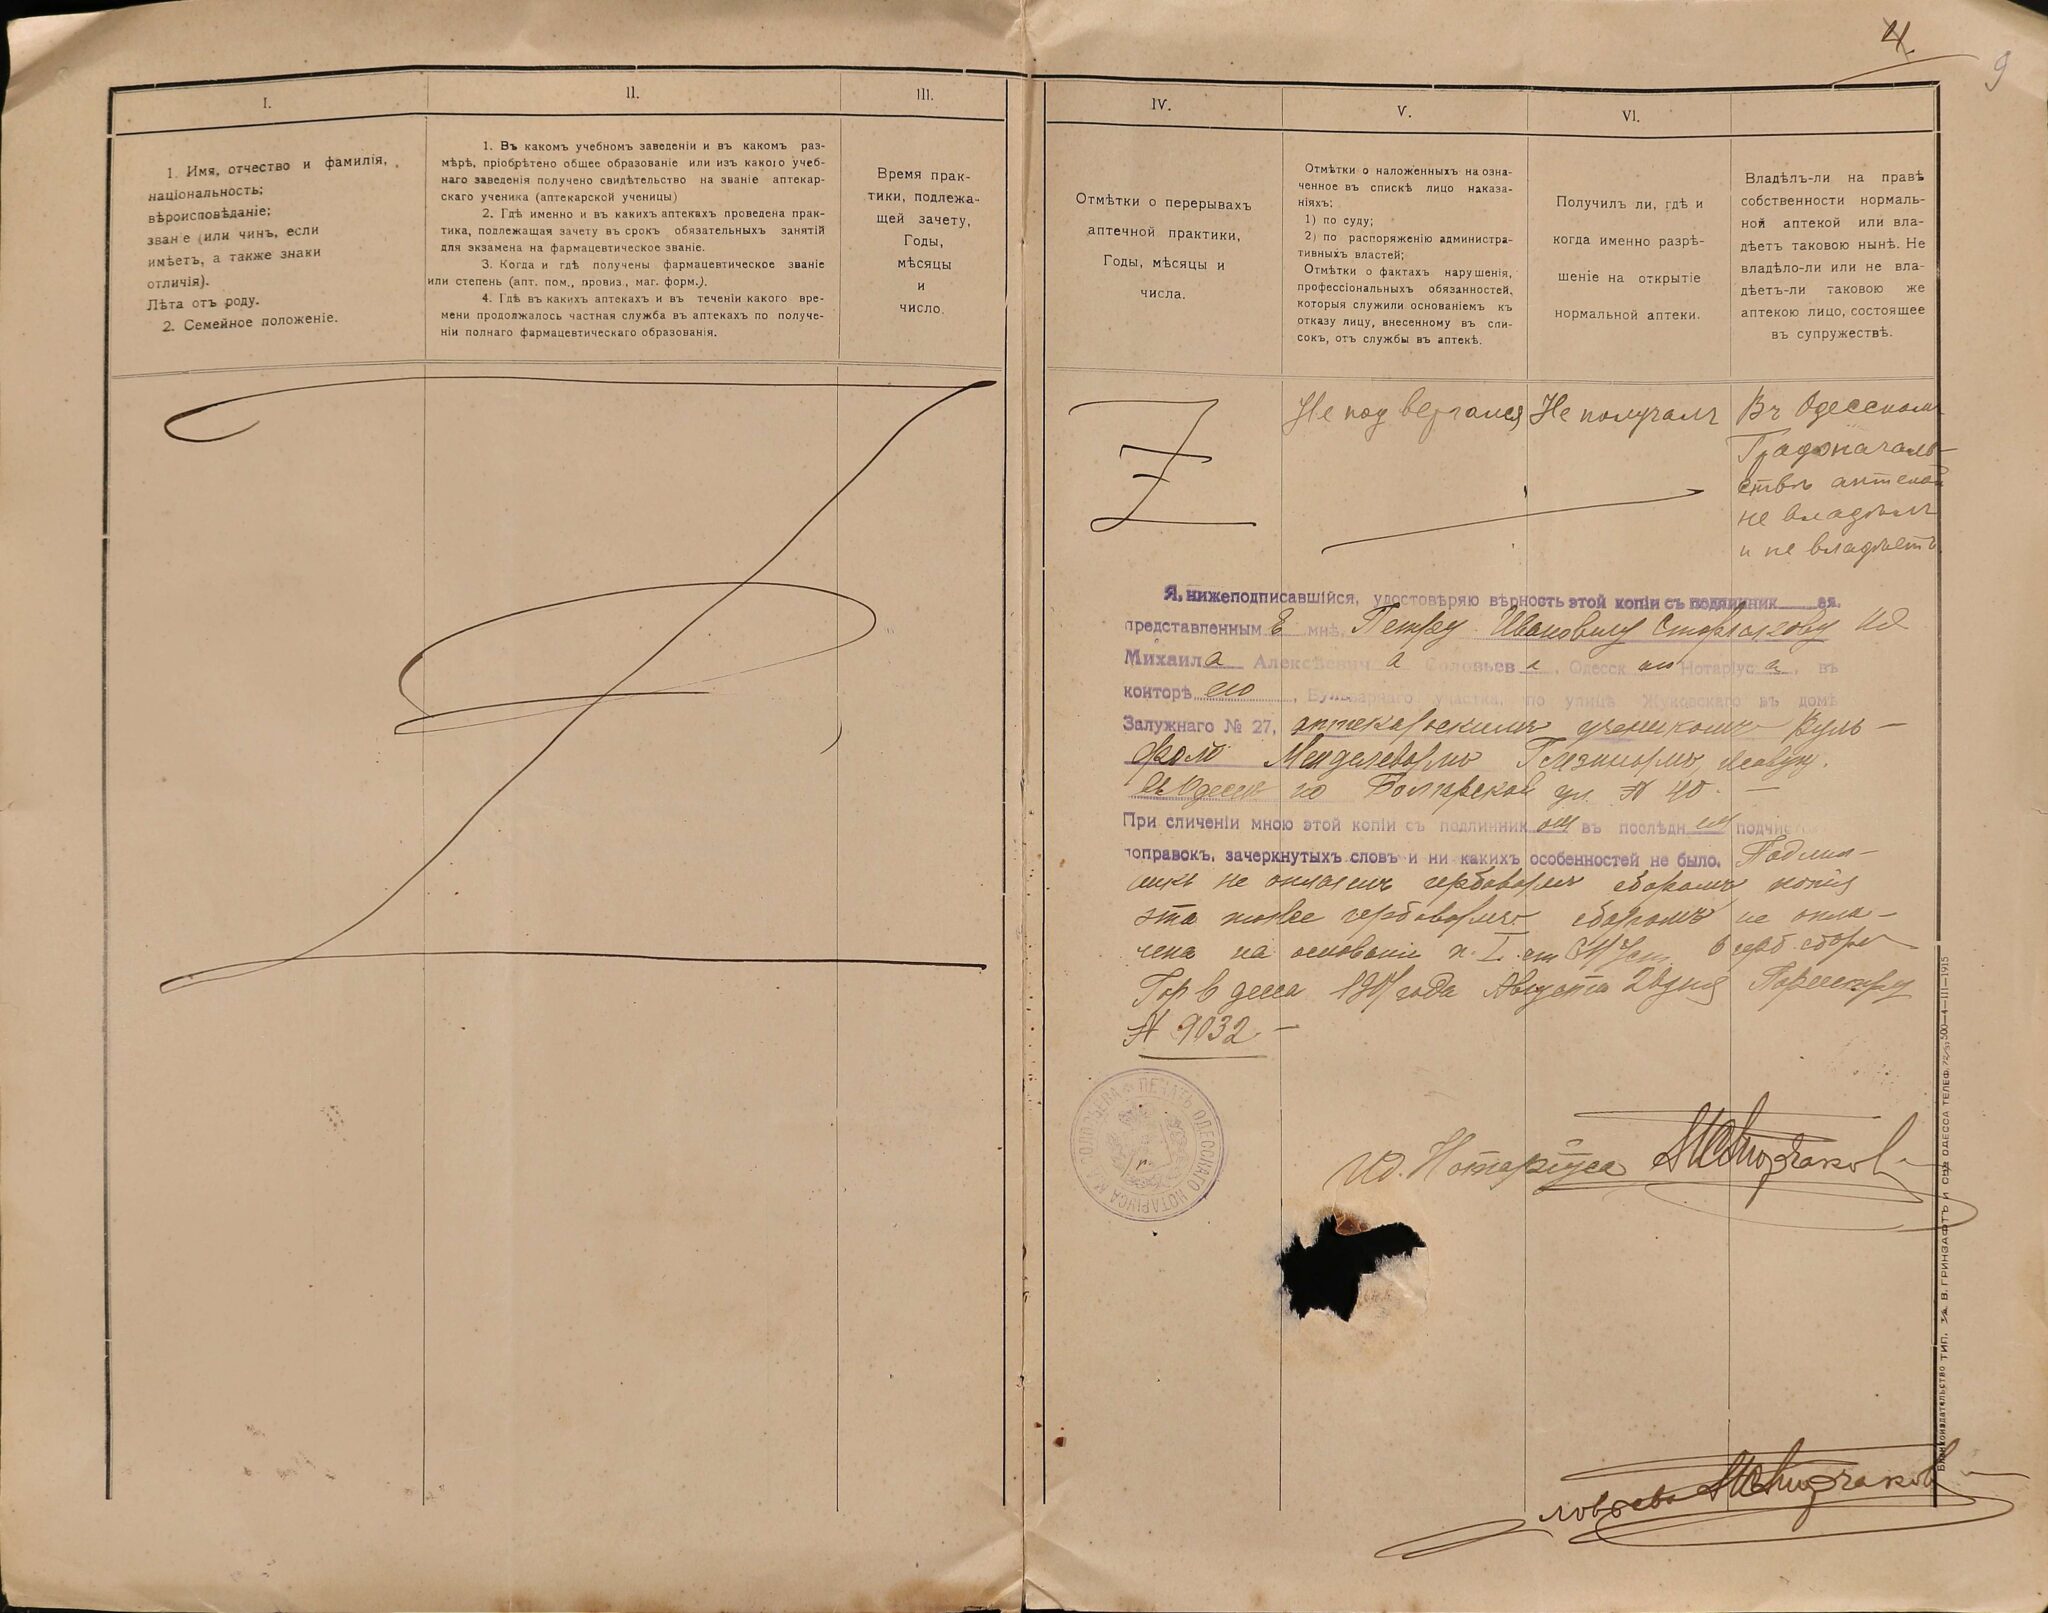 4.
9
I.
II.
III.
1. Имя, отчество и фамилія,
національность;
вѣроисповѣданіе;
званіе (или чинъ, если
имѣетъ, а также знаки
отличія).
Лѣта отъ роду.
2. Семейное положеніе.
1. Въ какомъ учебномъ заведеніи и въ какомъ раз-
мѣрѣ, пріобрѣтено общее образованіе или изъ какого учеб-
наго заведенія получено свидѣтельство на званіе аптекар-
скаго ученика (аптекарской ученицы)
2. Гдѣ именно и въ какихъ аптекахъ проведена прак-
тика, подлежащая зачету въ срокъ обязательныхъ занятій
для экзамена на фармацевтическое званіе.
3. Когда и гдѣ получены фармацевтическое званіе
или степень (апт. пом., провиз., маг. форм.).
4. Гдѣ въ какихъ аптекахъ и въ теченіи какого вре-
мени продолжалось частная служба въ аптекахъ по получе-
ніи полнаго фармацевтическаго образованія.
Время прак-
тики, подлежа-
щей зачету,
Годы,
мѣсяцы
и
число.
IV.
V.
VI.
Отмѣтки о перерывахъ
аптечной практики,
Годы, мѣсяцы и
числа.
Отмѣтки о наложенныхъ на озна-
ченное въ спискѣ лицо наказа-
ніяхъ:
1) по суду;
2) по распоряженію администра-
тивныхъ властей;
Отмѣтки о фактахъ нарушенія,
профессіональныхъ обязанностей,
которыя служили основаніемъ къ
отказу лицу, внесенному въ спи-
сокъ, отъ службы въ аптекѣ.
Получилъ ли, гдѣ и
когда именно разрѣ-
шеніе на открытіе
нормальной аптеки.
Владѣлъ-ли на правѣ
собственности нормаль-
ной аптекой или вла-
дѣетъ таковою нынѣ. Не
владѣло-ли или не вла-
дѣетъ-ли таковою же
аптекою лицо, состоящее
въ супружествѣ.
Не подвергался
Не получалъ
Въ Одесскомъ
Градоначаль-
ствѣ аптекой
не владѣлъ
и не владѣетъ.
Я, нижеподписавшійся, удостовѣряю вѣрность этой копіи съ подлинник ея,
представленным мнѣ, Петру Ивановичу
Михаила Алексѣевича Соловьева, Одесск Нотаріуса, въ
конторѣ его, Бульварнаго участка, по улицѣ Жуковскаго въ домѣ
Залужнаго № 27, аптекарскимъ ученикомъ Вуль-
фомъ
въ Одессѣ по Болгарской ул. № 40.
При сличеніи мною этой копіи съ подлинником въ послѣднем подчис
поправокъ, зачеркнутыхъ словъ и ни какихъ особенностей не было. Подлин-
никъ не оплаченъ гербовымъ сборомъ копія
эта также гербовымъ сборомъ не опла-
чена на основаніи п. I ст Уст. о герб. сборѣ
Гор Одесса года Августа дня По реестру
№ 9032.
ПЕЧАТЬ ОДЕССКАГО НОТАРІУСА М. А. СОЛОВЬЕВА
И.д. Нотаріуса
ловьева
Бланкоиздательство ТИП. В. ГРИНЗАФТЪ И СНЪ ОДЕССА ТЕЛЕФ. 500—4—III—1915